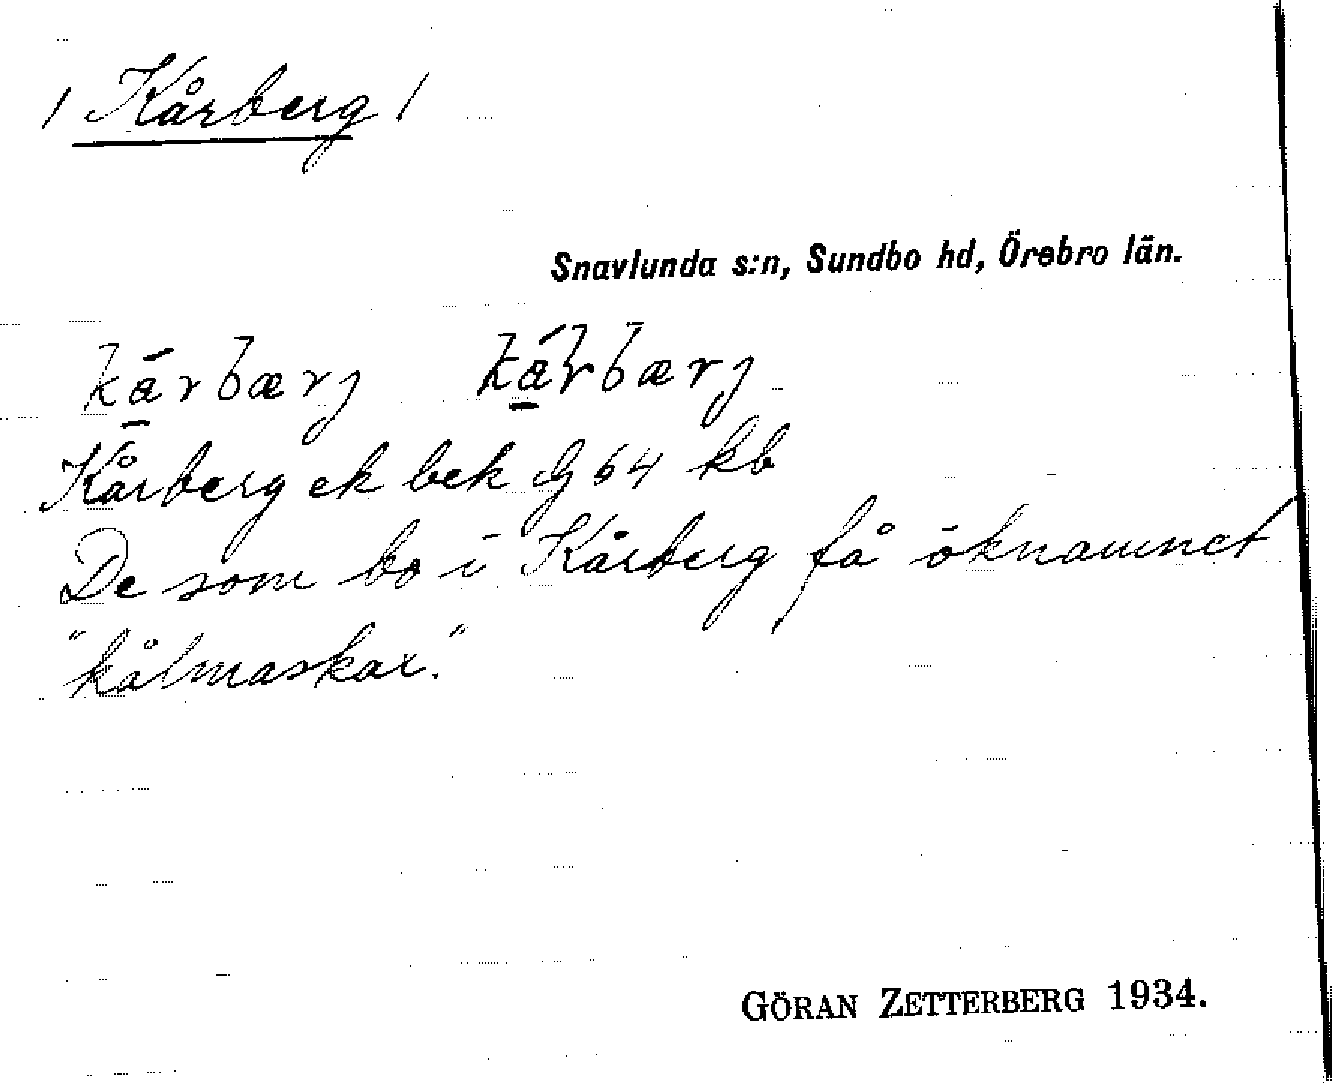 / Kårberg /
Snavlunda s:n, Sundbo hd, Örebro län.
kårbærj kårbærj
Kårberg ek bek G 64 kb
De som bo i Kårberg få öknamnet
"kålmaskar."
GÖRAN ZETTERBERG 1934.